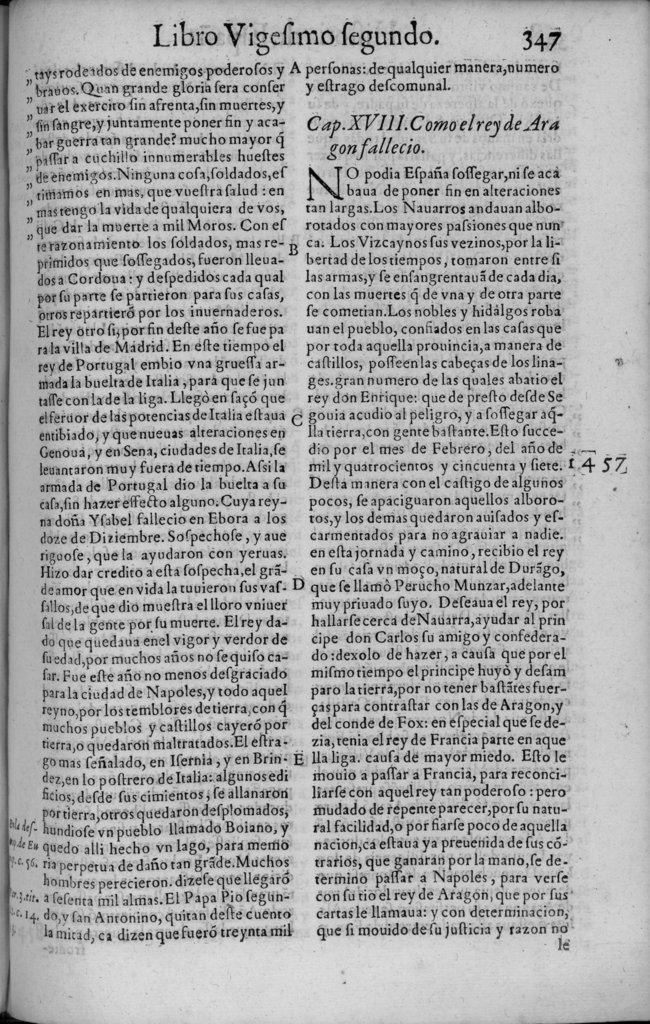 Libro Vigesimo segundo. 347
tays rodeados de enemigos poderosos y
brauos. Quan grande gloria sera conser
uar el exercito sin afrenta, sin muertes, y
sin sangre, y juntamente poner fin y aca-
bar guerra tan grande? mucho mayor q̃
passar a cuchillo innumerables huestes
de enemigos. Ninguna cosa, soldados, es
timamos en mas, que vuestra salud: en
mas tengo la vida de qualquiera de vos,
que dar la muerte a mil Moros. Con es
te razonamiento los soldados, mas re-
primidos que sossegados, fueron lleua-
dos a Cordoua: y despedidos cada qual
por su parte se partieron para sus casas,
otros repartierõ por los inuernaderos.
El rey otro si, por fin deste año se fue pa
ra la villa de Madrid. En este tiempo el
rey de Portugal embio vna gruessa ar-
mada la buelta de Italia, para que se jun
tasse con la de la liga. Llegò en saçõ que
el feruor de las potencias de Italia estaua
entibiado, y que nueuas alteraciones en
Genoua, y en Sena, ciudades de Italia, se
leuantaron muy fuera de tiempo. Assi la
armada de Portugal dio la buelta a su
casa, sin hazer effecto alguno. Cuya rey-
na doña Ysabel fallecio en Ebora a los
doze de Diziembre. Sospechose, y aue
riguose, que la ayudaron con yeruas.
Hizo dar credito a esta sospecha, el grã-
de amor que en vida la tuuieron sus vas-
sallos, de que dio muestra el lloro vniuer
sal de la gente por su muerte. El rey da-
do que quedaua enel vigor y verdor de
su edad, por muchos años no se quiso ca-
sar. Fue este año no menos desgraciado
para la ciudad de Napoles, y todo aquel
reyno, por los temblores de tierra, con q̃
muchos pueblos y castillos cayerõ por
tierra, o quedaron maltratados. El estra-
go mas señalado, en Isernia, y en Brin-
dez, en lo postrero de Italia: algunos edi
ficios, desde sus cimientos, se allanaron
por tierra, otros quedaron desplomados,
hundiose vn pueblo llamado Boiano, y
quedo alli hecho vn lago, para memo
ria perpetua de daño tan grãde. Muchos
hombres perecieron. dizese que llegarõ
a sesenta mil almas. El Papa Pio segun-
do, y san Antonino, quitan deste cuento
la mitad, ca dizen que fuerõ treynta mil
c. 56.
c. 14.
A
B
C
D
E
personas: de qualquier manera, numero
y estrago descomunal.
Cap. XVIII. Como el rey de Ara
gon fallecio.
NO podia España sossegar, ni se aca
baua de poner fin en alteraciones
tan largas. Los Nauarros andauan albo-
rotados con mayores passiones que nun
ca. Los Vizcaynos sus vezinos, por la li-
bertad de los tiempos, tomaron entre si
las armas, y se ensangrentauã de cada dia,
con las muertes q̃ de vna y de otra parte
se cometian. Los nobles y hidalgos roba
uan el pueblo, confiados en las casas que
por toda aquella prouincia, a manera de
castillos, posseen las cabeças de los lina-
ges. gran numero de las quales abatio el
rey don Enrique: que de presto desde Se
gouia acudio al peligro, y a sossegar aq̃-
lla tierra, con gente bastante. Esto succe-
dio por el mes de Febrero, del año de
mil y quatrocientos y cincuenta y siete. 1457
Desta manera con el castigo de algunos
pocos, se apaciguaron aquellos alboro-
tos, y los demas quedaron auisados y es-
carmentados para no agrauiar a nadie.
en esta jornada y camino, recibio el rey
en su casa vn moço, natural de Durãgo,
que se llamò Perucho Munzar, adelante
muy priuado suyo. Deseaua el rey, por
hallarse cerca de Nauarra, ayudar al prin
cipe don Carlos su amigo y confedera-
do: dexolo de hazer, a causa que por el
mismo tiempo el principe huyò y desam
paro la tierra, por no tener bastãtes fuer-
ças para contrastar con las de Aragon, y
del conde de Fox: en especial que se de-
zia, tenia el rey de Francia parte en aque
lla liga. causa de mayor miedo. Esto le
mouio a passar a Francia, para reconci-
liarse con aquel rey tan poderoso: pero
mudado de repente parecer, por su natu-
ral facilidad, o por fiarse poco de aquella
nacion, ca estaua ya preuenida de sus cõ-
trarios, que ganaran por la mano, se de-
termino passar a Napoles, para verse
con su tio el rey de Aragon, que por sus
cartas le llamaua: y con determinacion,
que si mouido de su justicia y razon no
le